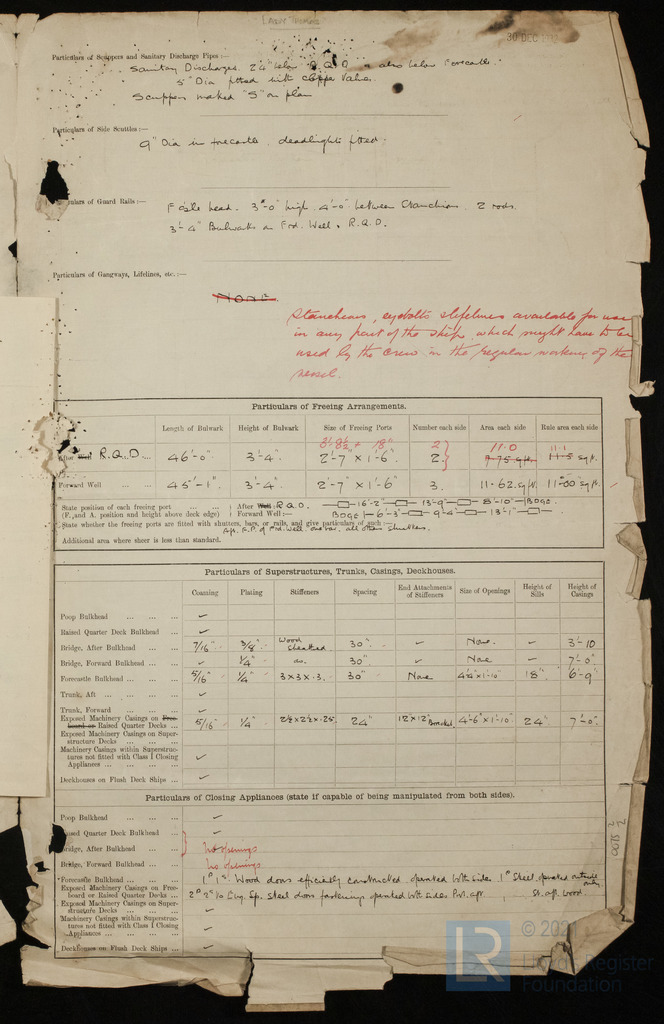 30 DEC
Particulars of Scuppers and Sanitary Discharge Pipes:—
Sanitary Discharges. 2'4" below R.Q.D. & also below Forecastle.
5" Dia fitted with clapper valves.
Scuppers marked "S" on plan
Particulars of Side Scuttles:—
9" Dia in forecastle. deadlights fitted.
ulars of Guard Rails:—
Fo'cle head. 3'-0" high. 4'-0" between Stanchions. 2 rods.
3'-4" Bulwarks in Frd. Well & R.Q.D.
Particulars of Gangways, Lifelines, etc.:—
None.
Stanchions, eyebolts & lifelines available for use
in any part of the ship, which might have to be
used by the crew in the regular working of the
vessel.
Particulars of Freeing Arrangements.
Length of Bulwark Height of Bulwark Size of Freeing Ports Number each side Area each side Rule area each side
3'-8½" × 18" 2 11.0 11.1
After Well R.Q.D 46'-0" 3'-4" 2'-7" × 1'-6" 2 7.75 sq.ft. 11.5 sq.ft.
Forward Well 45'-1" 3'-4" 2'-7" × 1'-6" 3. 11.62 sq.ft. 11.00 sq.ft.
State position of each freeing port ... ... After Well R.Q.D. 16'-2" 13'-9" 8'-10" BDGE.
(F. and A. position and height above deck edge) Forward Well:— BDGE 6'-3" 9'-4" 13'-1"
State whether the freeing ports are fitted with shutters, bars, or rails, and give particulars of such:—
Aft F.P. of Frd. Well bars, all others shutters.
Additional area where sheer is less than standard.
Particulars of Superstructures, Trunks, Casings, Deckhouses.
Coaming Plating Stiffeners Spacing End Attachments of Stiffeners Size of Openings Height of Sills Height of Casings
Poop Bulkhead ... ... ... ✓
Raised Quarter Deck Bulkhead ... ✓
Bridge, After Bulkhead ... ... 7/16" 3/8" Wood sheathed 30" ✓ None. – 3'-10
Bridge, Forward Bulkhead ... ... ✓ 1/4" do. 30" ✓ None – 7'-0"
Forecastle Bulkhead ... ... ... 5/16" 1/4" 3×3×.3. 30" None 4'-4"×1'-10" 18" 6'-9"
Trunk, Aft ... ... ... ✓
Trunk, Forward ... ... ...
Exposed Machinery Casings on Free-
board or Raised Quarter Decks ... 5/16" 1/4" 2½×2½×.25 24" 12×12" Bracket. 4'-6"×1'-10" 24" 7'-0"
Exposed Machinery Casings on Super-
structure Decks ... ... ...
Machinery Casings within Superstruc-
tures not fitted with Class I Closing
Appliances ... ... ... ✓
Deckhouses on Flush Deck Ships ... ✓
Particulars of Closing Appliances (state if capable of being manipulated from both sides).
Poop Bulkhead ... ... ... ✓
aised Quarter Deck Bulkhead ... ✓
Bridge, After Bulkhead ... ... No openings
Bridge, Forward Bulkhead ... ... No openings
Forecastle Bulkhead ... ... Wood doors efficiently constructed operated both sides. Steel operated outside only.
Exposed Machinery Casings on Free-
board or Raised Quarter Decks ... steel doors fastening operated both sides Port aft. St. aft wood.
Exposed Machinery Casings on Super-
structure Decks ... ... ... ✓
Machinery Casings within Superstruc-
tures not fitted with Class I Closing
Appliances ... ... ... ✓
Deckhouses on Flush Deck Ships ... ✓
LR
© 2021
Lloyd's Register
Foundation